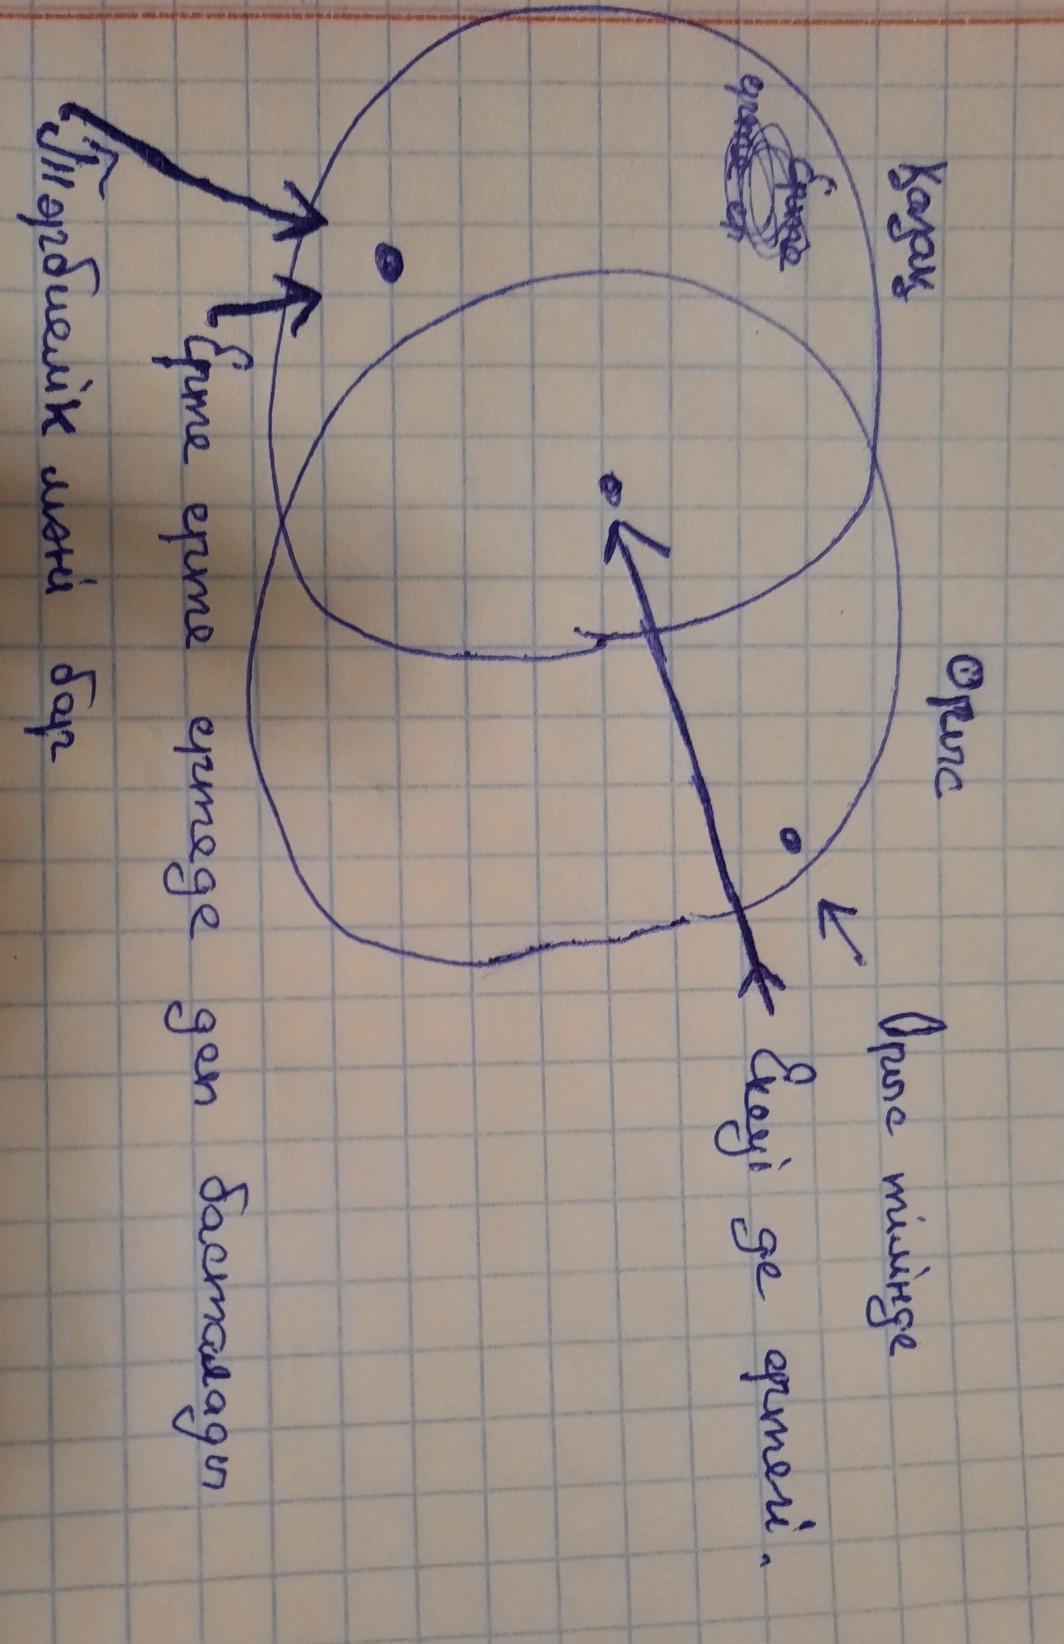 Қазақ
Орыс
Орыс тілінде
Екеуі де ертегі.
Ерте ерте ертеде деп басталады
Тәрбиелік мәні бар